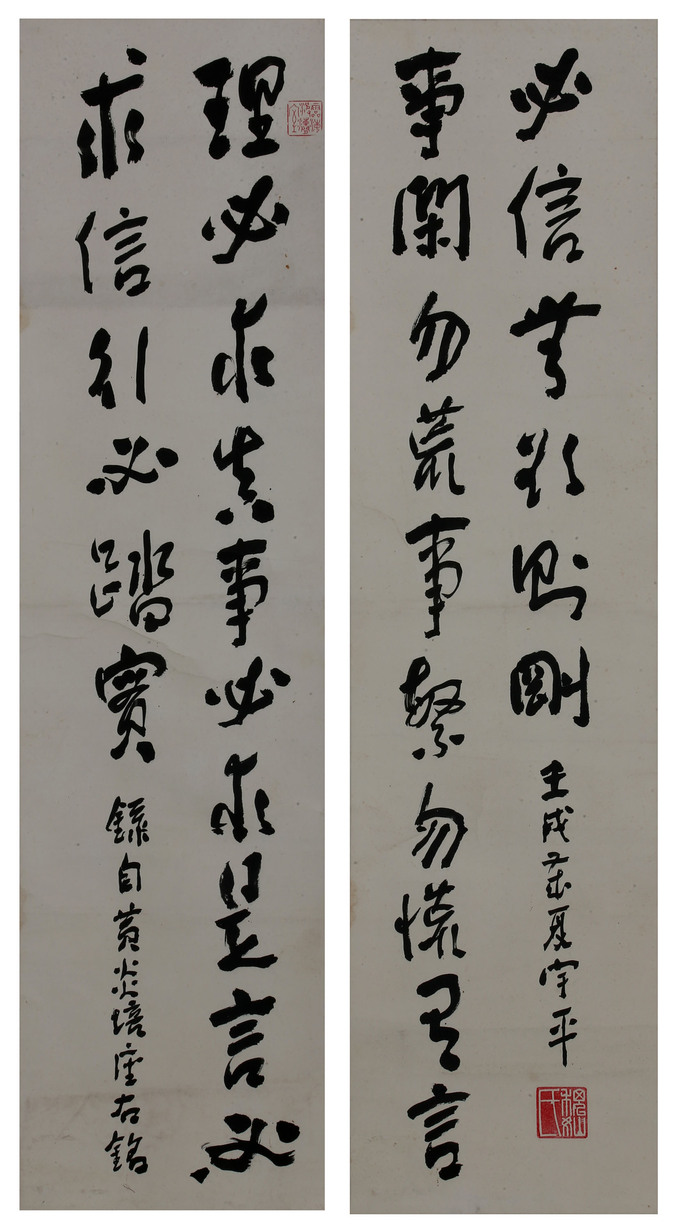 理必求真事必求是言必
求信行必踏實
錄自黃炎培座右銘
事閑勿荒事繁勿慌有言
必信無欲則剛
壬戌夏宇平